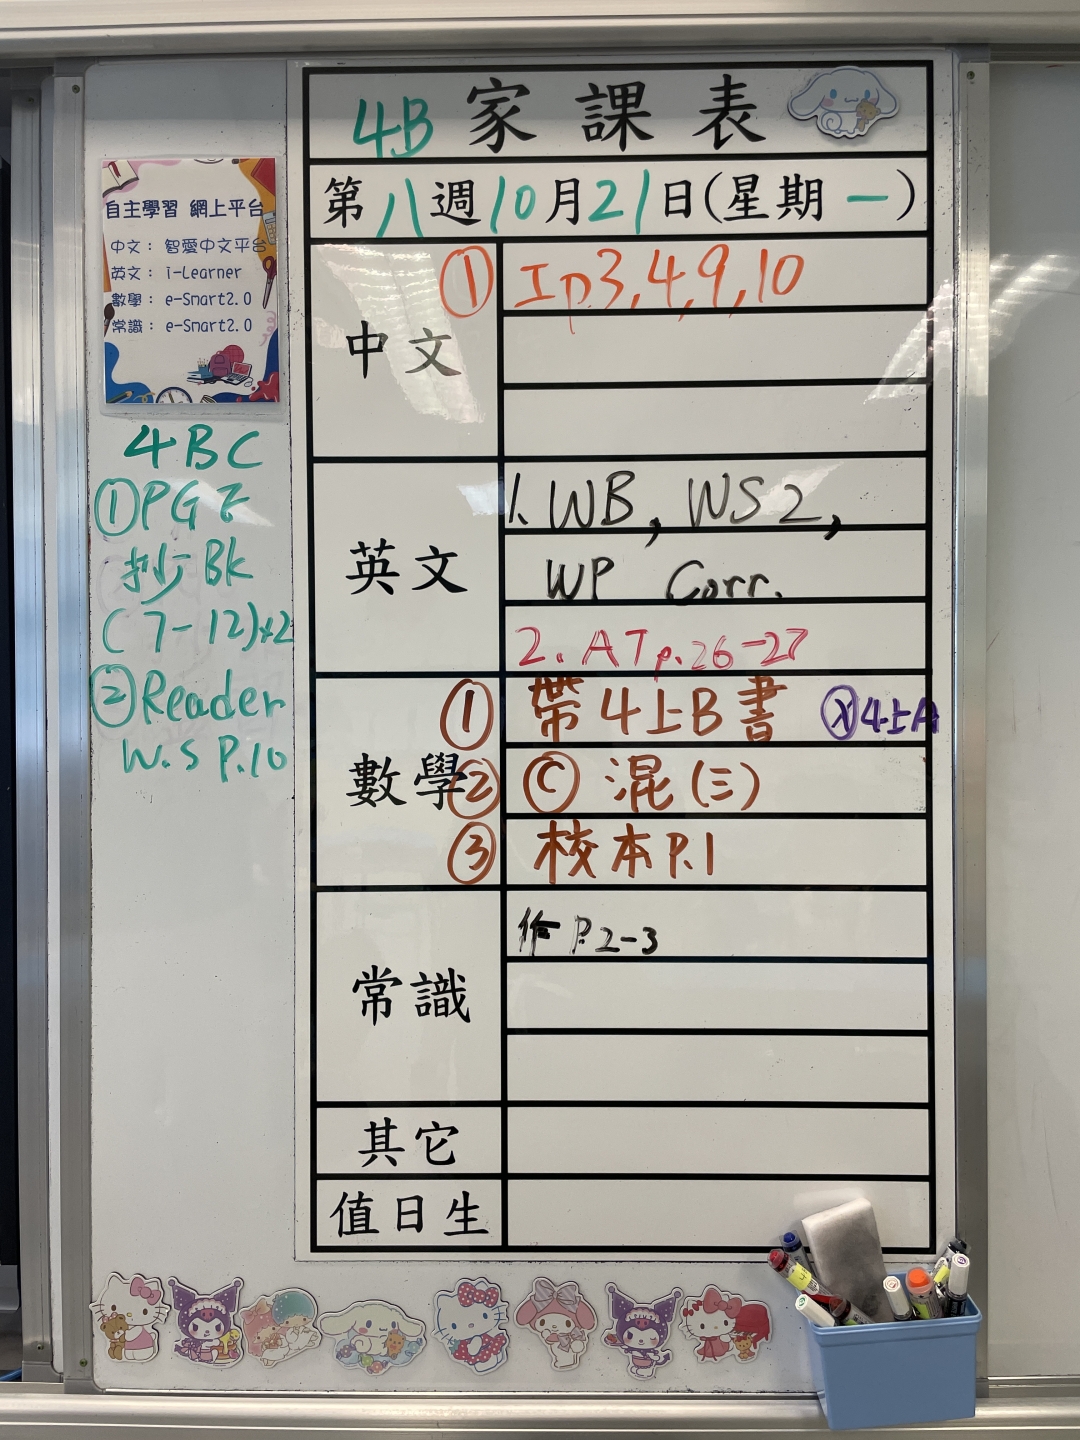 4B 家課表
第八週10月21日(星期一)
自主學習 網上平台
中文： 智愛中文平台
英文： i-Learner
數學： e-Smart2.0
常識： e-Smart2.0
中文
① Ip.3,4,9,10
英文
1. WB, WS2,
WP Corr.
2. AT p.26-27
數學
① 帶4上B書 ⓧ4上A
② Ⓒ 混(三)
③ 校本P.1
常識
作 P.2-3
其它
值日生
4BC
①PGE
抄Bk
(7-12)x2
②Reader
W.S P.10